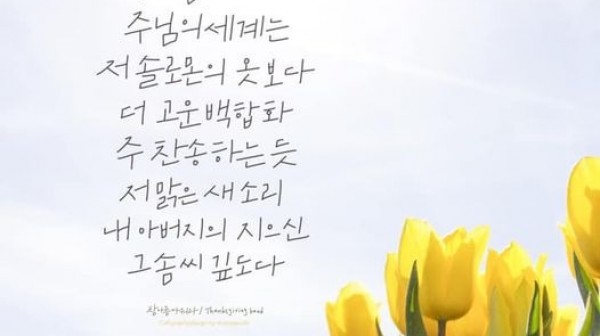 주님의 세계는
저 솔로몬의 옷보다
더 고운 백합화
주 찬송하는 듯
저 맑은 새소리
내 아버지의 지으신
그 솜씨 깊도다
Thanksgiving hand